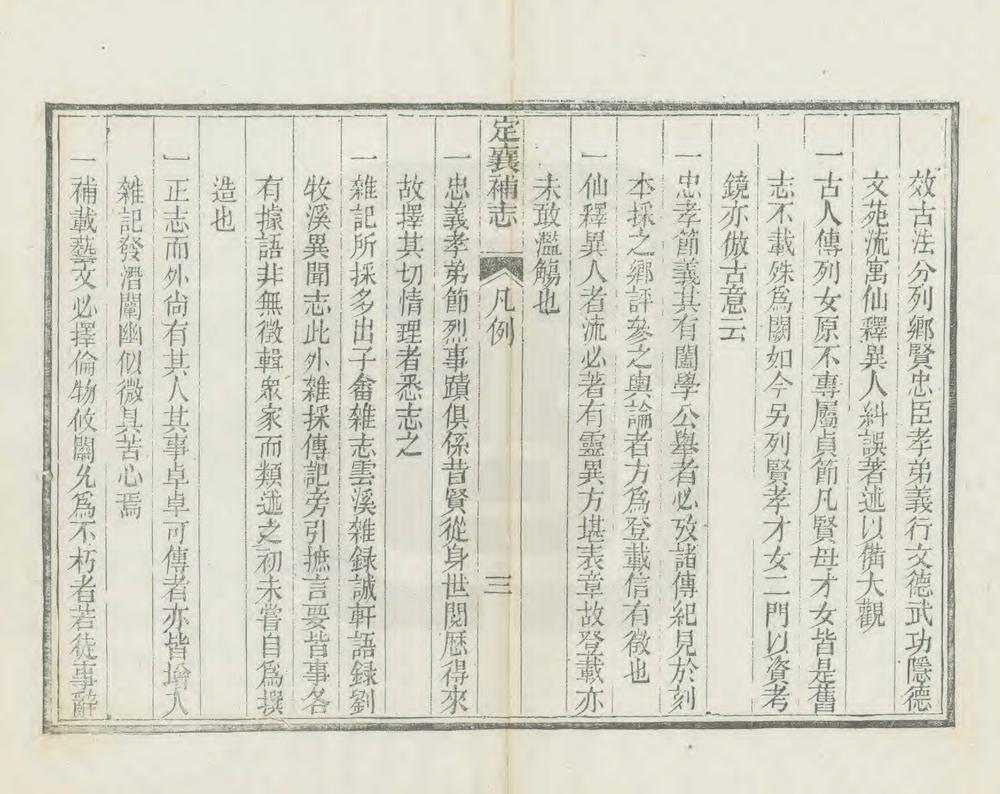 效古法分列鄉賢忠臣孝弟義行文德武功隱德
文苑流寓仙釋異人糾誤著述以備大觀
一古人傳列女原不專屬貞節凡賢母才女皆是舊
志不載殊爲闕如今另列賢孝才女二門以資考
鏡亦倣古意云
一忠孝節義其有闔學公舉者必攷諸傳紀見於刻
本採之鄉評參之輿論者方爲登載信有徵也
一仙釋異人者流必著有靈異方堪表章故登載亦
未敢濫觴也
定襄補志 凡例 三
一忠義孝弟節烈事蹟俱係昔賢從身世閱歷得來
故擇其切情理者悉志之
一雜記所採多出子畬雜志雲溪雜録誠軒語録劉
牧溪異聞志此外雜採傳記旁引摭言要皆事各
有據語非無徵輯衆家而類述之初未嘗自爲撰
造也
一正志而外尙有其人其事卓卓可傳者亦皆增入
雜記發潛闡幽似微具苦心焉
一補載藝文必擇倫物攸關允爲不朽者若徒事辭